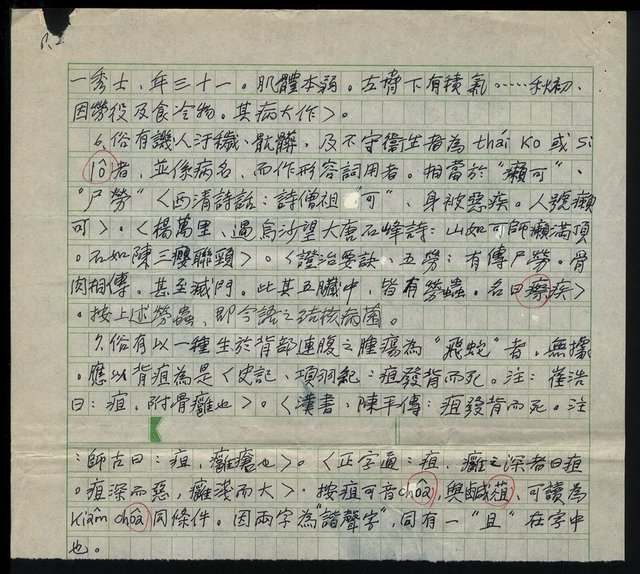 P.2
一秀士、年三十一。肌體本弱。左脅下有積氣……秋初、
因勞役及食冷物。其病大作〉。
6.俗有譏人汙穢、骯髒、及不守衛生者為 thái ko 或 si
lô 者，並係病名、而作形容詞用者。相當於“癩可”、
“尸勞”〈西清詩話：詩僧祖“可”、身被惡疾。人號癩
可〉。〈楊萬里、過烏沙望大唐石峰詩：山如可師癩滿頂
。石如陳三癭聯頸〉。〈證治要訣、五勞：有傳尸勞。骨
肉相傳。甚至滅門。此其五臟中，皆有勞蟲。名曰瘵疾〉
。按上述勞蟲、即今語之結核病菌。
7.俗有以一種生於背部連腹之腫瘍為“飛蛇”者，無據
。應以背疽為是〈史記、項羽紀：疽發背而死。注：崔浩
曰：疽，附骨癰也〉。〈漢書、陳平傳：疽發背而死。注
：師古曰：疽，癰瘡也〉。〈正字通：疽，癰之深者曰疽
。疽深而惡，癰淺而大〉。按疽可音 chôa，與鹹葅、可讀為
kiâm chôa 同條件。因兩字為“諧聲字”，同有一“且”在字中
也。